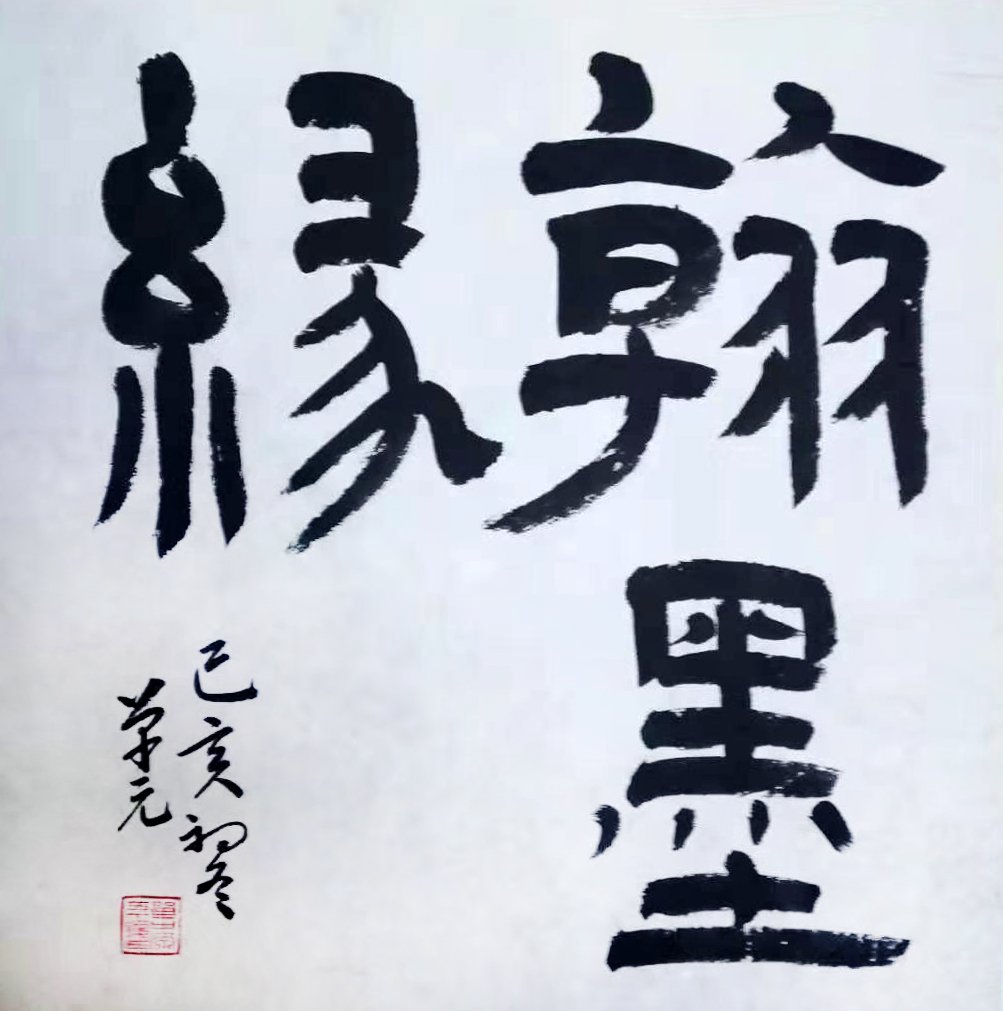 翰墨
緣
己亥初冬
草元